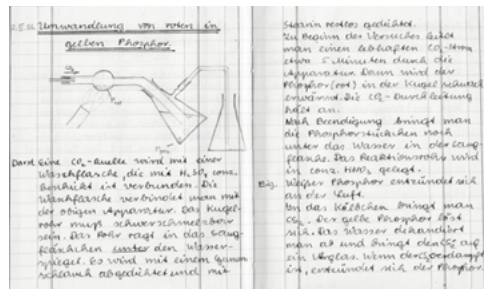 Umwandlung von roten in
gelben Phosphor.
CO₂
P rot
Darst. Eine CO₂-Quelle wird mit einer
Waschflasche, die mit H₂SO₄ conz.
beschickt ist verbunden. Die
Waschflasche verbindet man mit
der obigen Apparatur. Das Kugel-
rohr muß schwerschmelzbar
sein. Das Rohr ragt in das Saug-
fläschchen unter den Wasser-
spiegel. Es wird mit einem Gummi
schlauch abgedichtet und mit
restlos gedichtet.
Zu Beginn des Versuches leitet
man einen lebhaften CO₂-Strom
etwa 5 Minuten durch die
Apparatur. Dann wird der
Phosphor (rot) in der Kugel schwach
erwärmt. Die CO₂-Durchleitung
hält an.
Nach Beendigung bringt man
die Phosphorstückchen noch
unter das Wasser in der Saug-
flasche. Das Reaktionsrohr wird
in conz. HNO₃ gelegt.
Eig. Weißer Phosphor entzündet sich
an der Luft.
In das Kölbchen bringt man
CS₂. Der gelbe Phosphor löst
sich. Das Wasser dekantiert
man ab und bringt den CS₂ auf
ein Uhrglas. Wenn der CS₂ verdampft
ist, entzündet sich der Phosphor.